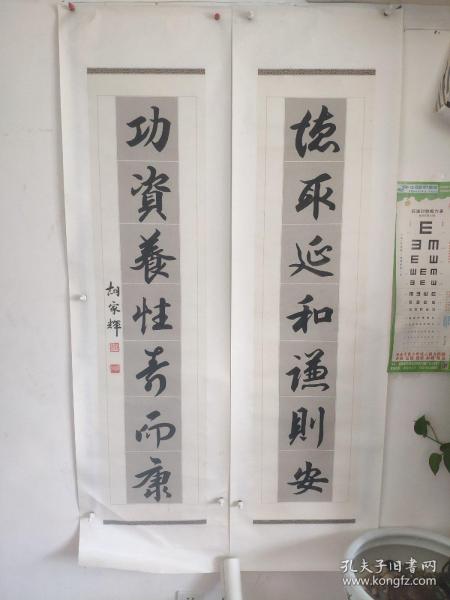 德取延和謙則安
功資養性壽而康
胡家輝
孔夫子旧书网
www.kongfz.com